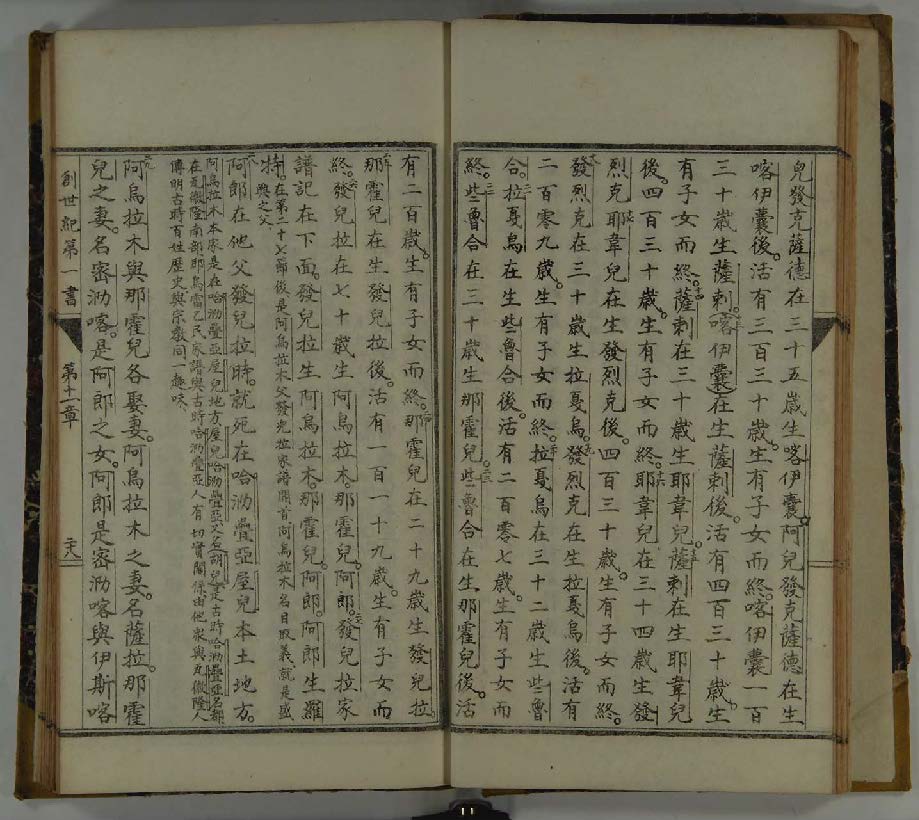 兒發克薩德在三十五歲生喀伊囊。阿兒發克薩德在生
喀伊囊後。活有三百三十歲。生有子女而終。喀伊囊一百
三十歲生薩剌。喀伊囊在生薩剌後。活有四百三十歲。生
有子女而終。薩剌在三十歲生耶韋兒。薩剌在生耶韋兒
後。四百三十歲。生有子女而終。耶韋兒在三十四歲生發
烈克。耶韋兒在生發烈克後。四百三十歲。生有子女而終。
發烈克在三十歲生拉戛烏。發烈克在生拉戛烏後。活有
二百零九歲。生有子女而終。拉戛烏在三十二歲生些魯
合。拉戛烏在生些魯合後。活有二百零七歲。生有子女而
終。些魯合在三十歲生那霍兒。些魯合在生那霍兒後。活
有二百歲。生有子女而終。那霍兒在二十九歲生發兒拉。
那霍兒在生發兒拉後。活有一百一十九歲。生有子女而
終。發兒拉在七十歲生阿烏拉木。那霍兒。阿郎。發兒拉家
譜記在下面。發兒拉生阿烏拉木。那霍兒。阿郎。阿郎生羅
特。在第二十七節後是阿烏拉木父發兒拉家譜開首阿烏拉木名目取義就是盛
與之父
阿郎在他父發兒拉時。就死在哈泐疊亞屋兒本土地方。
阿烏拉木本家是在哈泐疊亞屋兒地方屋兒哈泐疊亞又名胡兒是古時哈泐疊亞名郡
在瓦徽隆南部即烏雷乙民家譜與古時哈泐疊亞人有切實關係由他家與瓦徽隆人
傳明古時百姓歷史與宗教同一趣味
阿烏拉木與那霍兒各娶妻。阿烏拉木之妻。名薩拉。那霍
兒之妻。名密泐喀。是阿郎之女。阿郎是密泐喀與伊斯喀
創世紀第一書
第十一章